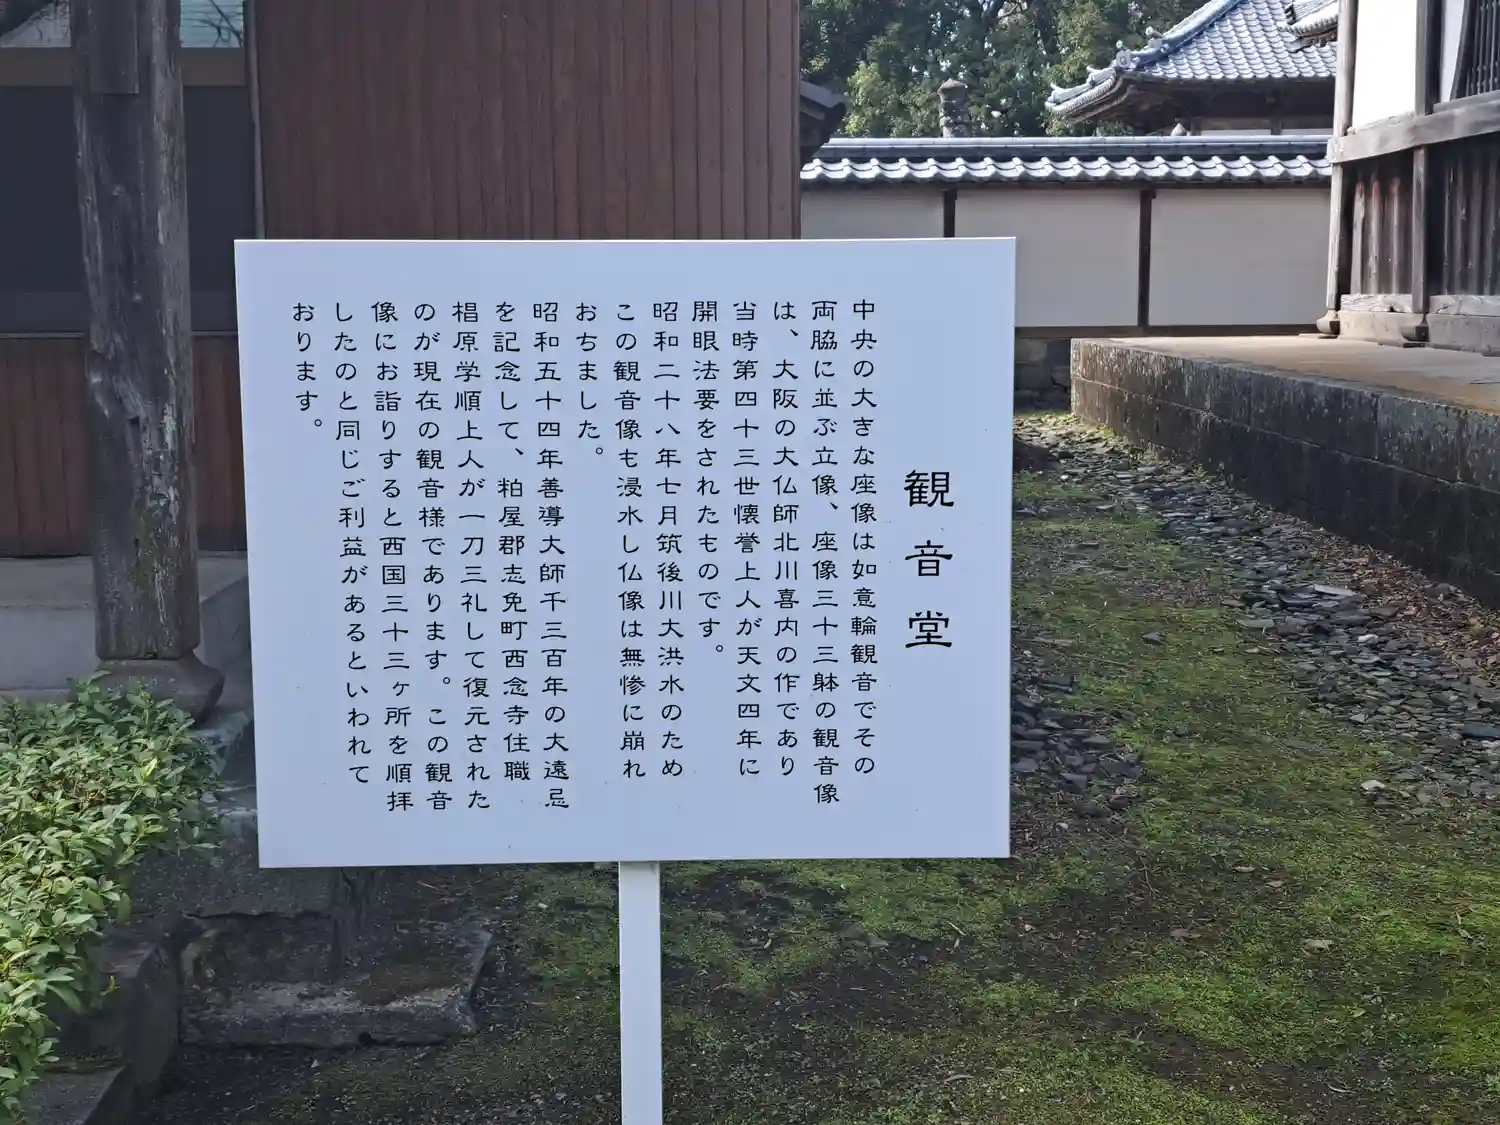 観音堂
中央の大きな座像は如意輪観音でその
両脇に並ぶ立像、座像三十三躰の観音像
は、大阪の大仏師北川喜内の作であり
当時第四十三世懐誉上人が天文四年に
開眼法要をされたものです。
昭和二十八年七月筑後川大洪水のため
この観音像も浸水し仏像は無惨に崩れ
おちました。
昭和五十四年善導大師千三百年の大遠忌
を記念して、粕屋郡志免町西念寺住職
椙原学順上人が一刀三礼して復元された
のが現在の観音様であります。この観音
像にお詣りすると西国三十三ヶ所を順拝
したのと同じご利益があるといわれて
おります。